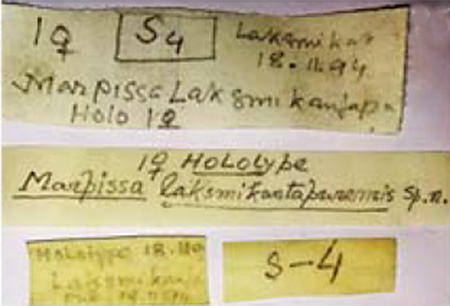 1♀ S4 Laksmikat
18.11.94
Marpissa Laksmikanjapa
Holo 1♀
1♀ HOLOTYPE
Marpissa laksmikantapurensis sp.n.
Holotype 18.11.9
Laksmikanja
S-4